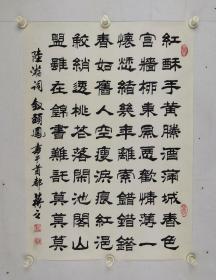 紅酥手黄縢酒滿城春色
宫牆柳東風惡歡情薄一
懷愁緒幾年離索錯錯錯
春如舊人空瘦淚痕紅浥
鮫綃透桃花落閑池閣山
盟雖在錦書難託莫莫莫
陸游詞釵頭鳳書于首都